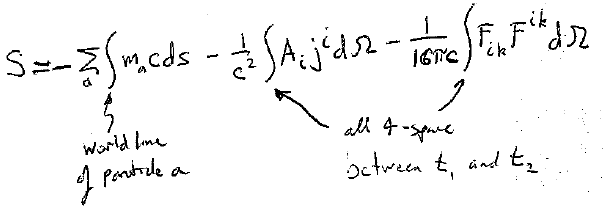 S = -∑ₐ∫mₐcds - 1/c² ∫AᵢjⁱdΩ - 1/16πc ∫FᵢₖFⁱᵏdΩ
world line
of particle a
all 4-space
between t₁ and t₂